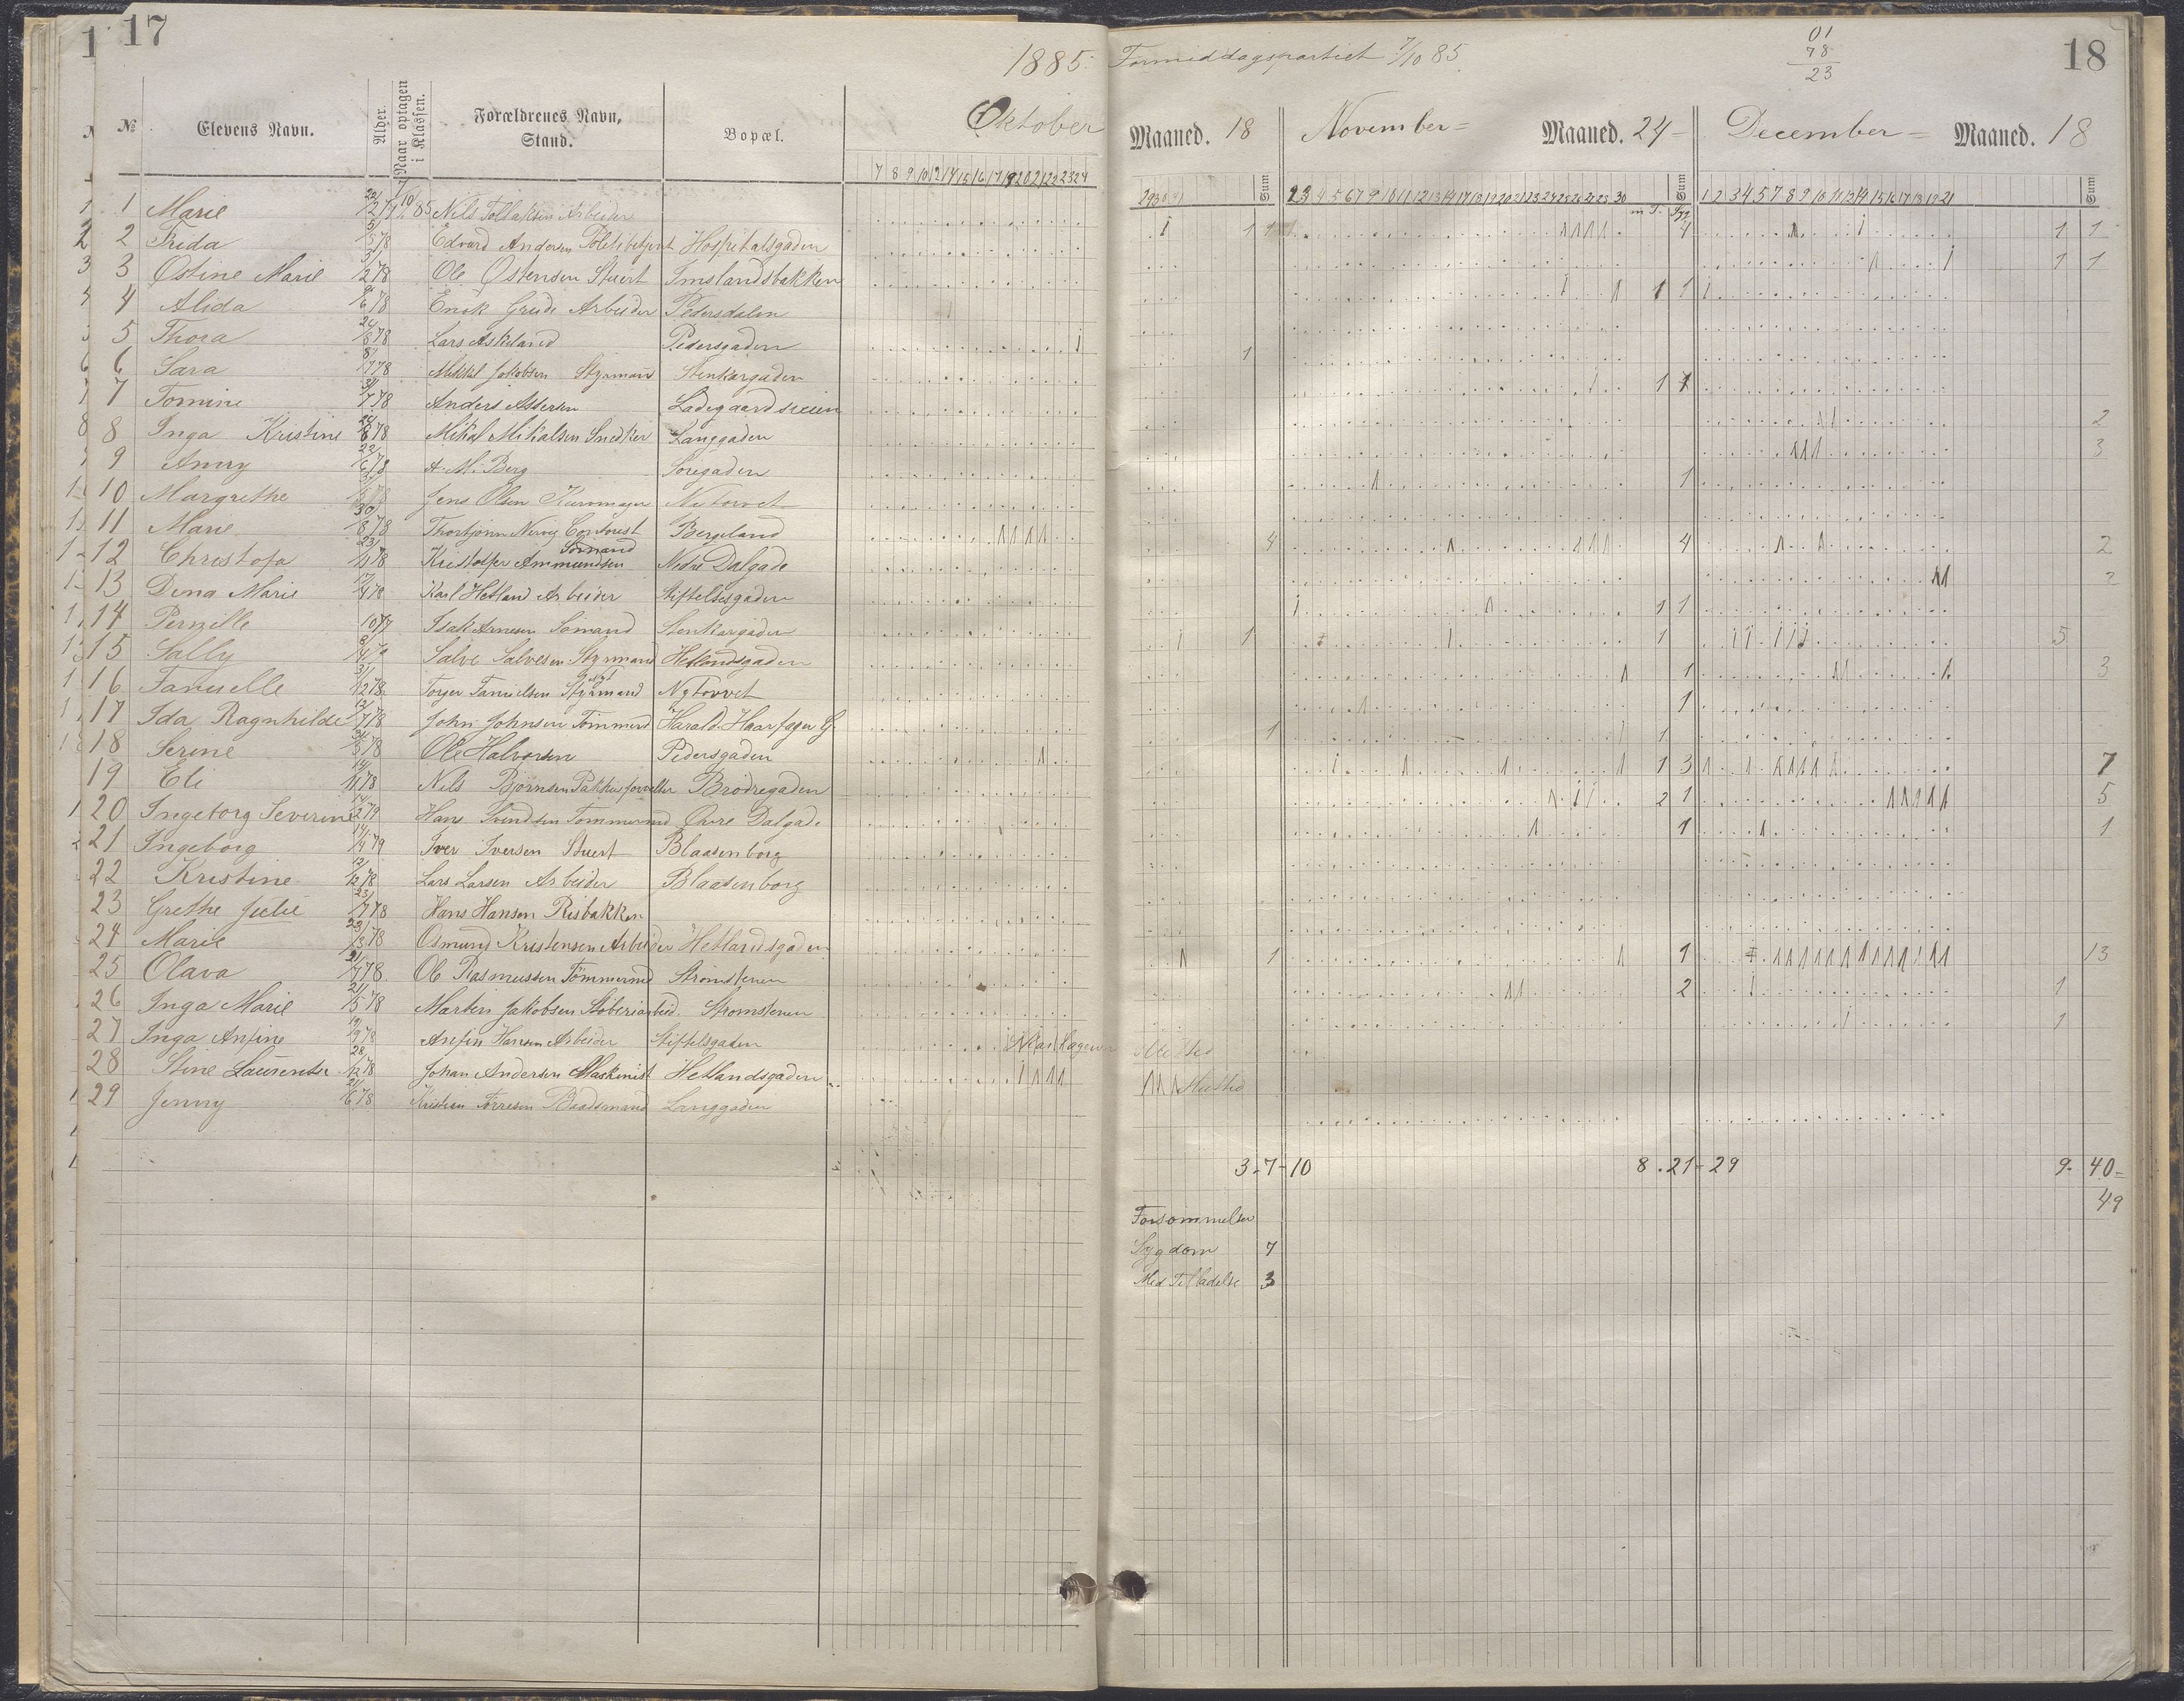 17
1885.
№ Elevens Navn. Alder. Naar optagen i Klassen. Forældrenes Navn, Stand. Bopæl. Oktober
7 8 9 10 12 14 15 16 17 19 20 21 22 23 24
1 Marie 7/10 85 Nils Tollaksen Arbeider
2 Frida 78 Edvard Andersen Politibetjent Hospitalsgaden
3 Østine Marie 78 Ole Østensen Stuert Imslandsbakken
4 Alida 78 Enok Grude Arbeider Pedersdalen
5 Thora 24/8 78 Lars Askeland Pedersgaden
6 Sara 8/7 78 Mikkel Jakobsen Styrmann Stenkargaden
7 Tomine 31/7 78 Anders Assersen Ladegaardsveien
8 Inga Kristine 78 Mikal Mikalsen Snedker Langgaden
9 Anny 22/6 78 A. M. Berg Søregaden
10 Margrethe 78 Jens Olsen Kurvmager Nytorvet
11 Marie 30/8 78 Thorbjørn Contorist Bergeland
12 Christofa 23/ 78 Kristoffer Ammundsen Sømand Nedre Dalgade
13 Dina Marie 78 Karl Hetland Arbeider Stiftelsesgaden
14 Pernille 10/77 Isak Arnesen Sømand Stenkargaden
15 Sally 8/ Salve Salvesen Styrmand Hetlandsgaden
16 Tanielle 31/12 78 Torger Tanielsen Styrmand Nytorvet
17 Ida Ragnhilde 13/7 78 John Johnsen Tømmermd Harald Haarfager G.
18 Serine 78 Ole Halvorsen Pedersgaden
19 Eli 14/11 78 Nils Bjørnsen Pakhusforvalter Brødregaden
20 Ingeborg Severine 79 Hans Svendsen Tømmermd Øvre Dalgade
21 Ingeborg 79 Iver Iversen Stuert Blaasenborg
22 Kristine 13/12 78 Lars Larsen Arbeider Blaasenborg
23 Grethe Julie 23/7 78 Hans Hansen Risbakken
24 Marie 23/3 78 Osmund Kristensen Arbeider Hetlandsgaden
25 Olava 21/7 78 Ole Rasmussen Tømmermd Strømstenen
26 Inga Marie 21/5 78 Martin Jakobsen Støberiarbeid. Strømstenen
27 Inga Anfine 19/9 78 Anfin Hansen Arbeider Stiftelsgaden
28 Stine Laurentse 28/12 78 Johan Andersen Maskinist Hetlandsgaden
29 Jenny 21/6 78 Kristian Tørresen Baadsmand Langgaden
Formiddagspartiet 7/10 85
01
78
23
18
Maaned. 18 November Maaned. 24 December Maaned. 18
Sum 2 3 4 5 6 7 9 10 11 12 13 14 17 18 19 20 21 23 24 25 26 27 28 30 m T. Sum 1 2 3 4 5 7 8 9 10 11 12 14 15 16 17 18 19 21 Sum
1 1 4 1 1
1 1
1 1
1
1 1
2
3
1
4 4 2
2
1 1
1 1 5
1 3
1
1 1
1 3 7
2 1 5
1 1
1 1 13
2 1
1
3 - 7 - 10 8 . 21 - 29 9 - 40 =
49
Forsømmelser
Sygdom 7
Med Tilladelse 3